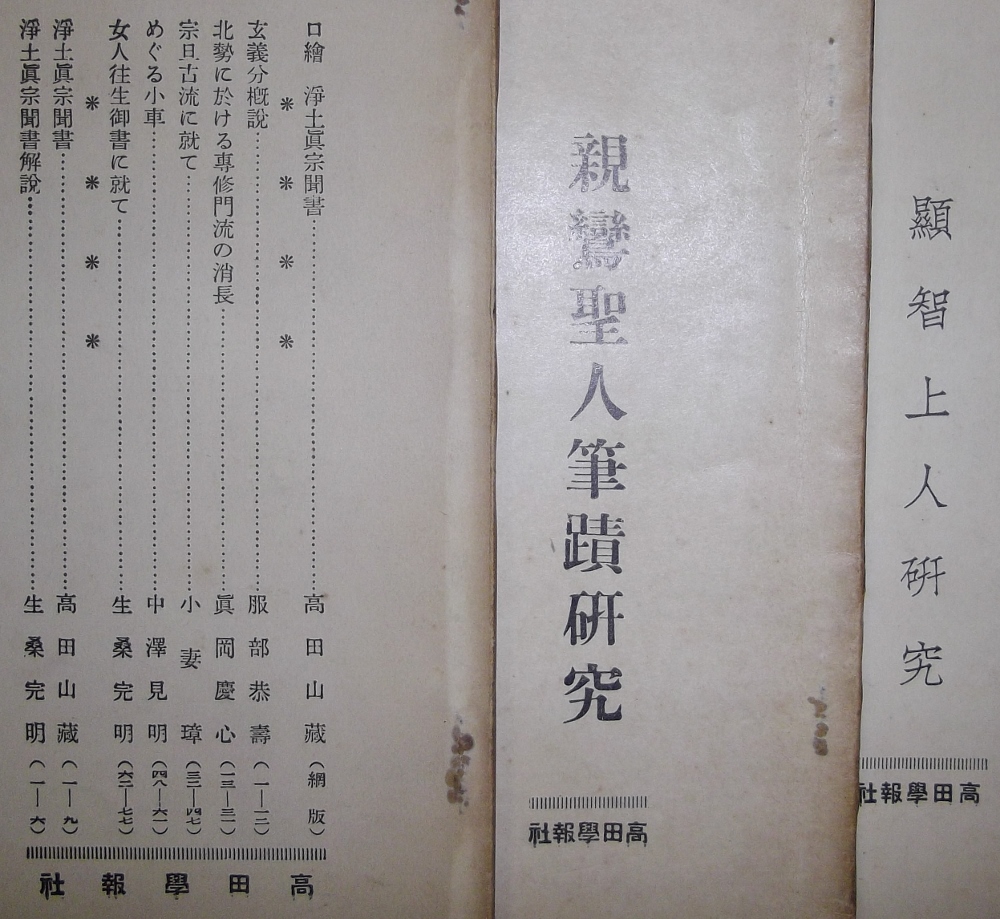 顯智上人硏究
高田學報社
親鸞聖人筆蹟硏究
高田學報社
口繪　淨土眞宗聞書……高田山藏（網版）
＊＊＊＊
玄義分槪說……服部恭壽（一―一二）
北勢に於ける專修門流の消長……眞岡慶心（一三―三一）
宗旦古流に就て……小妻璋（三三―四七）
めぐる小車……中澤見明（四八―六一）
女人往生御書に就て……生桑完明（六二―七七）
＊＊＊＊
淨土眞宗聞書……高田山藏（一―九）
淨土眞宗聞書解說……生桑完明（一―六）
高田學報社